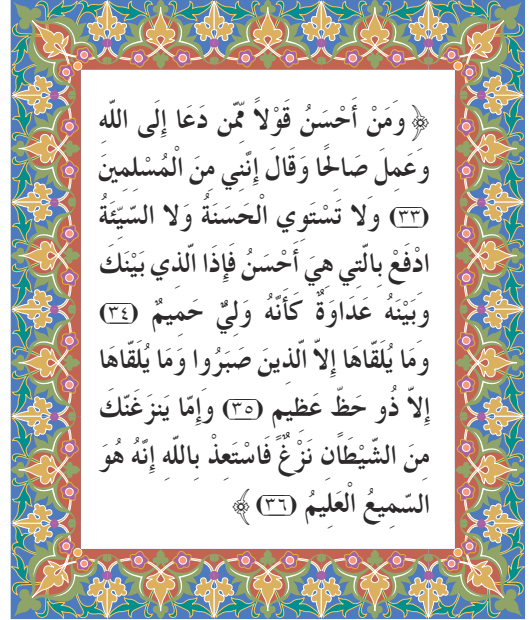 ﴿ وَمَنْ أَحْسَنُ قَوْلاً مِّمَّن دَعَا إِلَى اللّه
وعَملَ صَالحًا وَقَالَ إِنَّني منَ الْمُسْلمينَ
(٣٣) ولا تَسْتَوي الْحَسَنَةُ وَلا السّيّئةُ
ادْفَعْ بالّتي هيَ أَحْسَنُ فَإِذَا الّذي بَيْنَكَ
وبَيْنَهُ عَدَاوَةٌ كَأَنَّهُ وَليٌّ حَميمٌ (٣٤)
وَمَا يُلَقّاهَا إِلاّ الّذينَ صَبَرُوا وَمَا يُلَقّاهَا
إِلاّ ذُو حَظّ عَظيم (٣٥) وإِمّا يَنزَغَنّكَ
منَ الشّيْطَان نَزْغٌ فَاسْتَعذْ باللّه إِنَّهُ هُوَ
السّميعُ الْعَليمُ (٣٦) ﴾